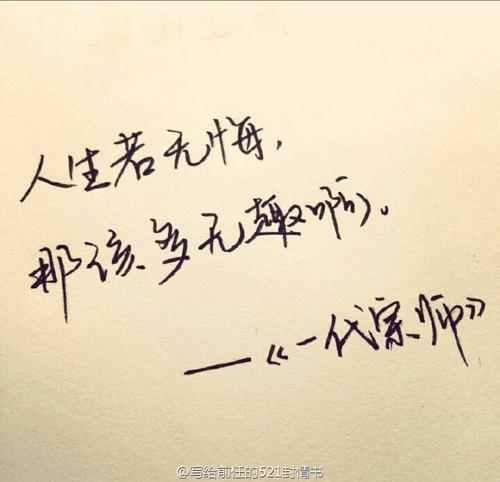 人生若无悔,
那该多无趣啊。
——《一代宗师》
@写给前任的521封情书